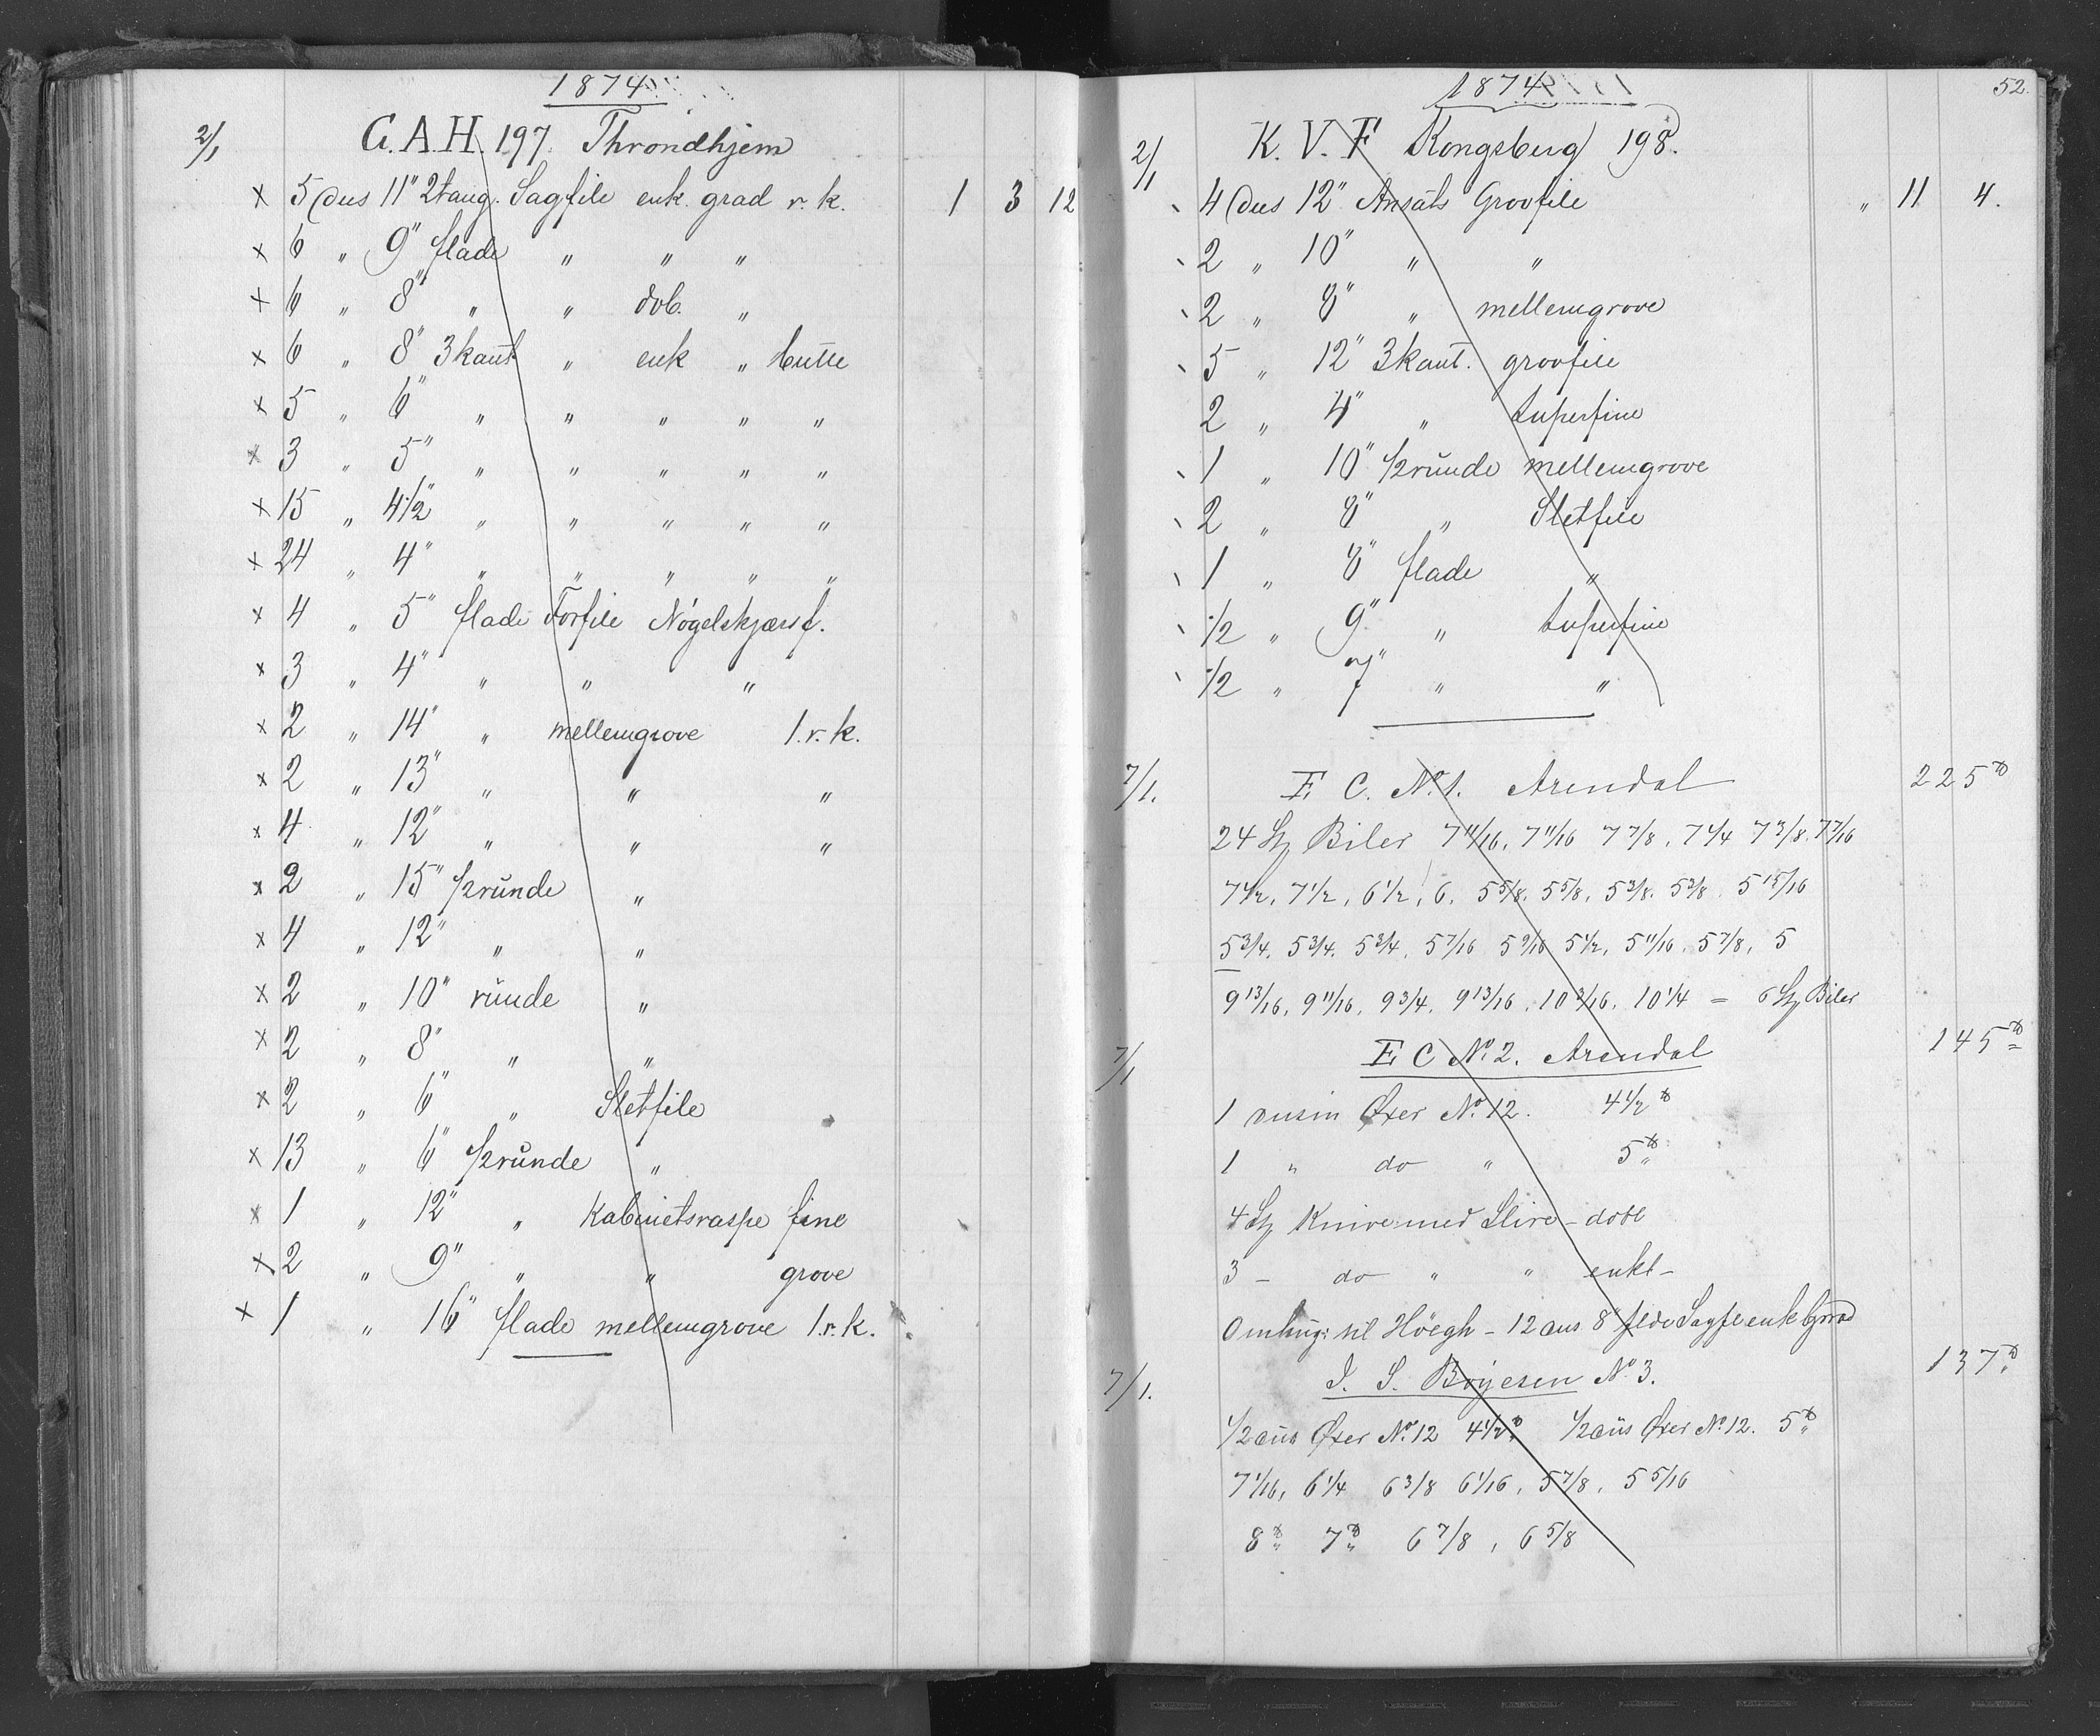 1874
2/1 G. A. H. 197. Throndhjem
× 5 dus 11" 2tang. Sagfile enk. grad r. k. 1 3 12
× 6 " 9" flade " " "
× 6 " 8" " " dob. "
× 6 " 8" 3kant " enk " butte
× 5 " 6" " " " " "
× 3 " 5" " " " " "
× 15 " 4 1/2" " " " " "
× 24 " 4" " " " " "
× 4 " 5" flade Forfile Nøgelskjærsf.
× 3 " 4" " " "
× 2 " 14" " mellemgrove 1. r. k.
× 2 " 13" " " "
× 4 " 12" " " "
× 2 " 15" 1/2 runde "
× 4 " 12" " "
× 2 " 10" runde "
× 2 " 8" " "
× 2 " 6" " Sletfile
× 13 " 6" 1/2 runde "
× 1 " 12" " Kabinetsraspe fine
× 2 " 9" " " grove
× 1 " 16" flade mellemgrove 1. r. k.
52.
1874
2/1 K. V. F Kongsberg 198.
4 dus 12" Ansats Grovfile " 11 4.
2 " 10" " "
2 " 8" " mellemgrove
5 " 12" 3kant. grovfile
2 " 4" " superfine
1 " 10" 1/2 runde mellemgrove
2 " 8" " Sletfile
1 " 8" flade "
1/2 " 9" " superfine
1/2 " 7" " "
7/1. E C. No. 1. Arendal 225 ℔
24 St Biler 7 11/16, 7 11/16 7 7/8, 7 1/4 7 3/8, 7 7/16
7 1/2, 7 1/2, 6 1/2, 6, 5 5/8, 5 5/8, 5 3/8. 5 3/8. 5 15/16
5 3/4. 5 3/4. 5 3/4. 5 7/16 5 9/16 5 1/2, 5 11/16. 5 7/8, 5
9 13/16, 9 11/16, 9 3/4, 9 13/16, 10 3/16, 10 1/4 = 6 St Biler
7/1 E C No. 2. Arendal 145 ℔
1 dusin Øxer No. 12. 4 1/2 ℔
1 " do " 5 ℔
4 St Knive med Slire - dobl
3 - do " " enkl -
til Höegh - 12 dus 8"
7/1. I. S. Boyesen No 3. 137 ℔
1/2 dus Øxer No. 12 4 1/2 ℔ 1/2 dus Øxer No. 12. 5 ℔
7 1/16, 6 1/4 6 3/8 6 1/16, 5 7/8, 5 5/16
8 ℔ 7 ℔ 6 7/8, 6 5/8